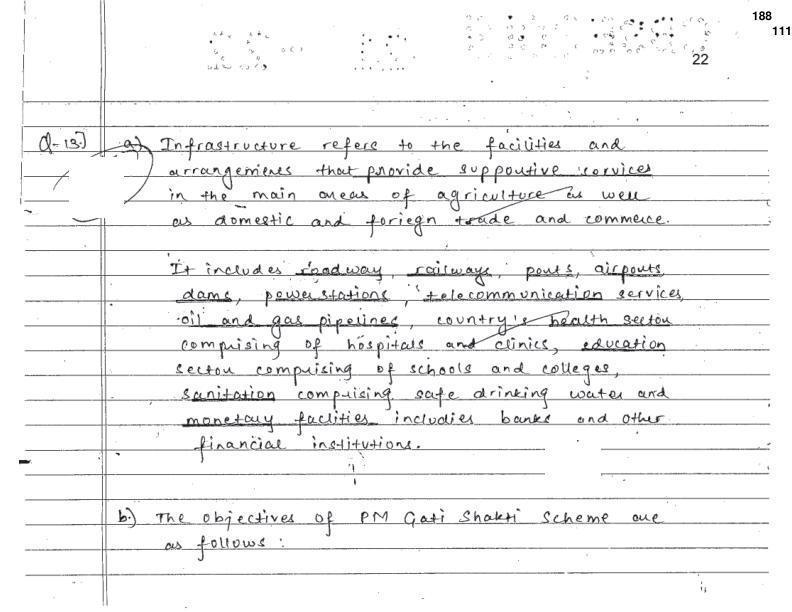 188
111
22
Q-13.] a) Infrastructure refers to the facilities and
arrangements that provide supportive services
in the main areas of agriculture as well
as domestic and foriegn trade and commerce.
It includes roadway, railways, ports, airports,
dams, power stations, telecommunication services,
oil and gas pipelines, country's health sector
comprising of hospitals and clinics, education
sector comprising of schools and colleges,
sanitation comprising safe drinking water and
monetary faclities includies banks and other
financial institutions.
b.) The objectives of PM Gati Shakti Scheme are
as follows :